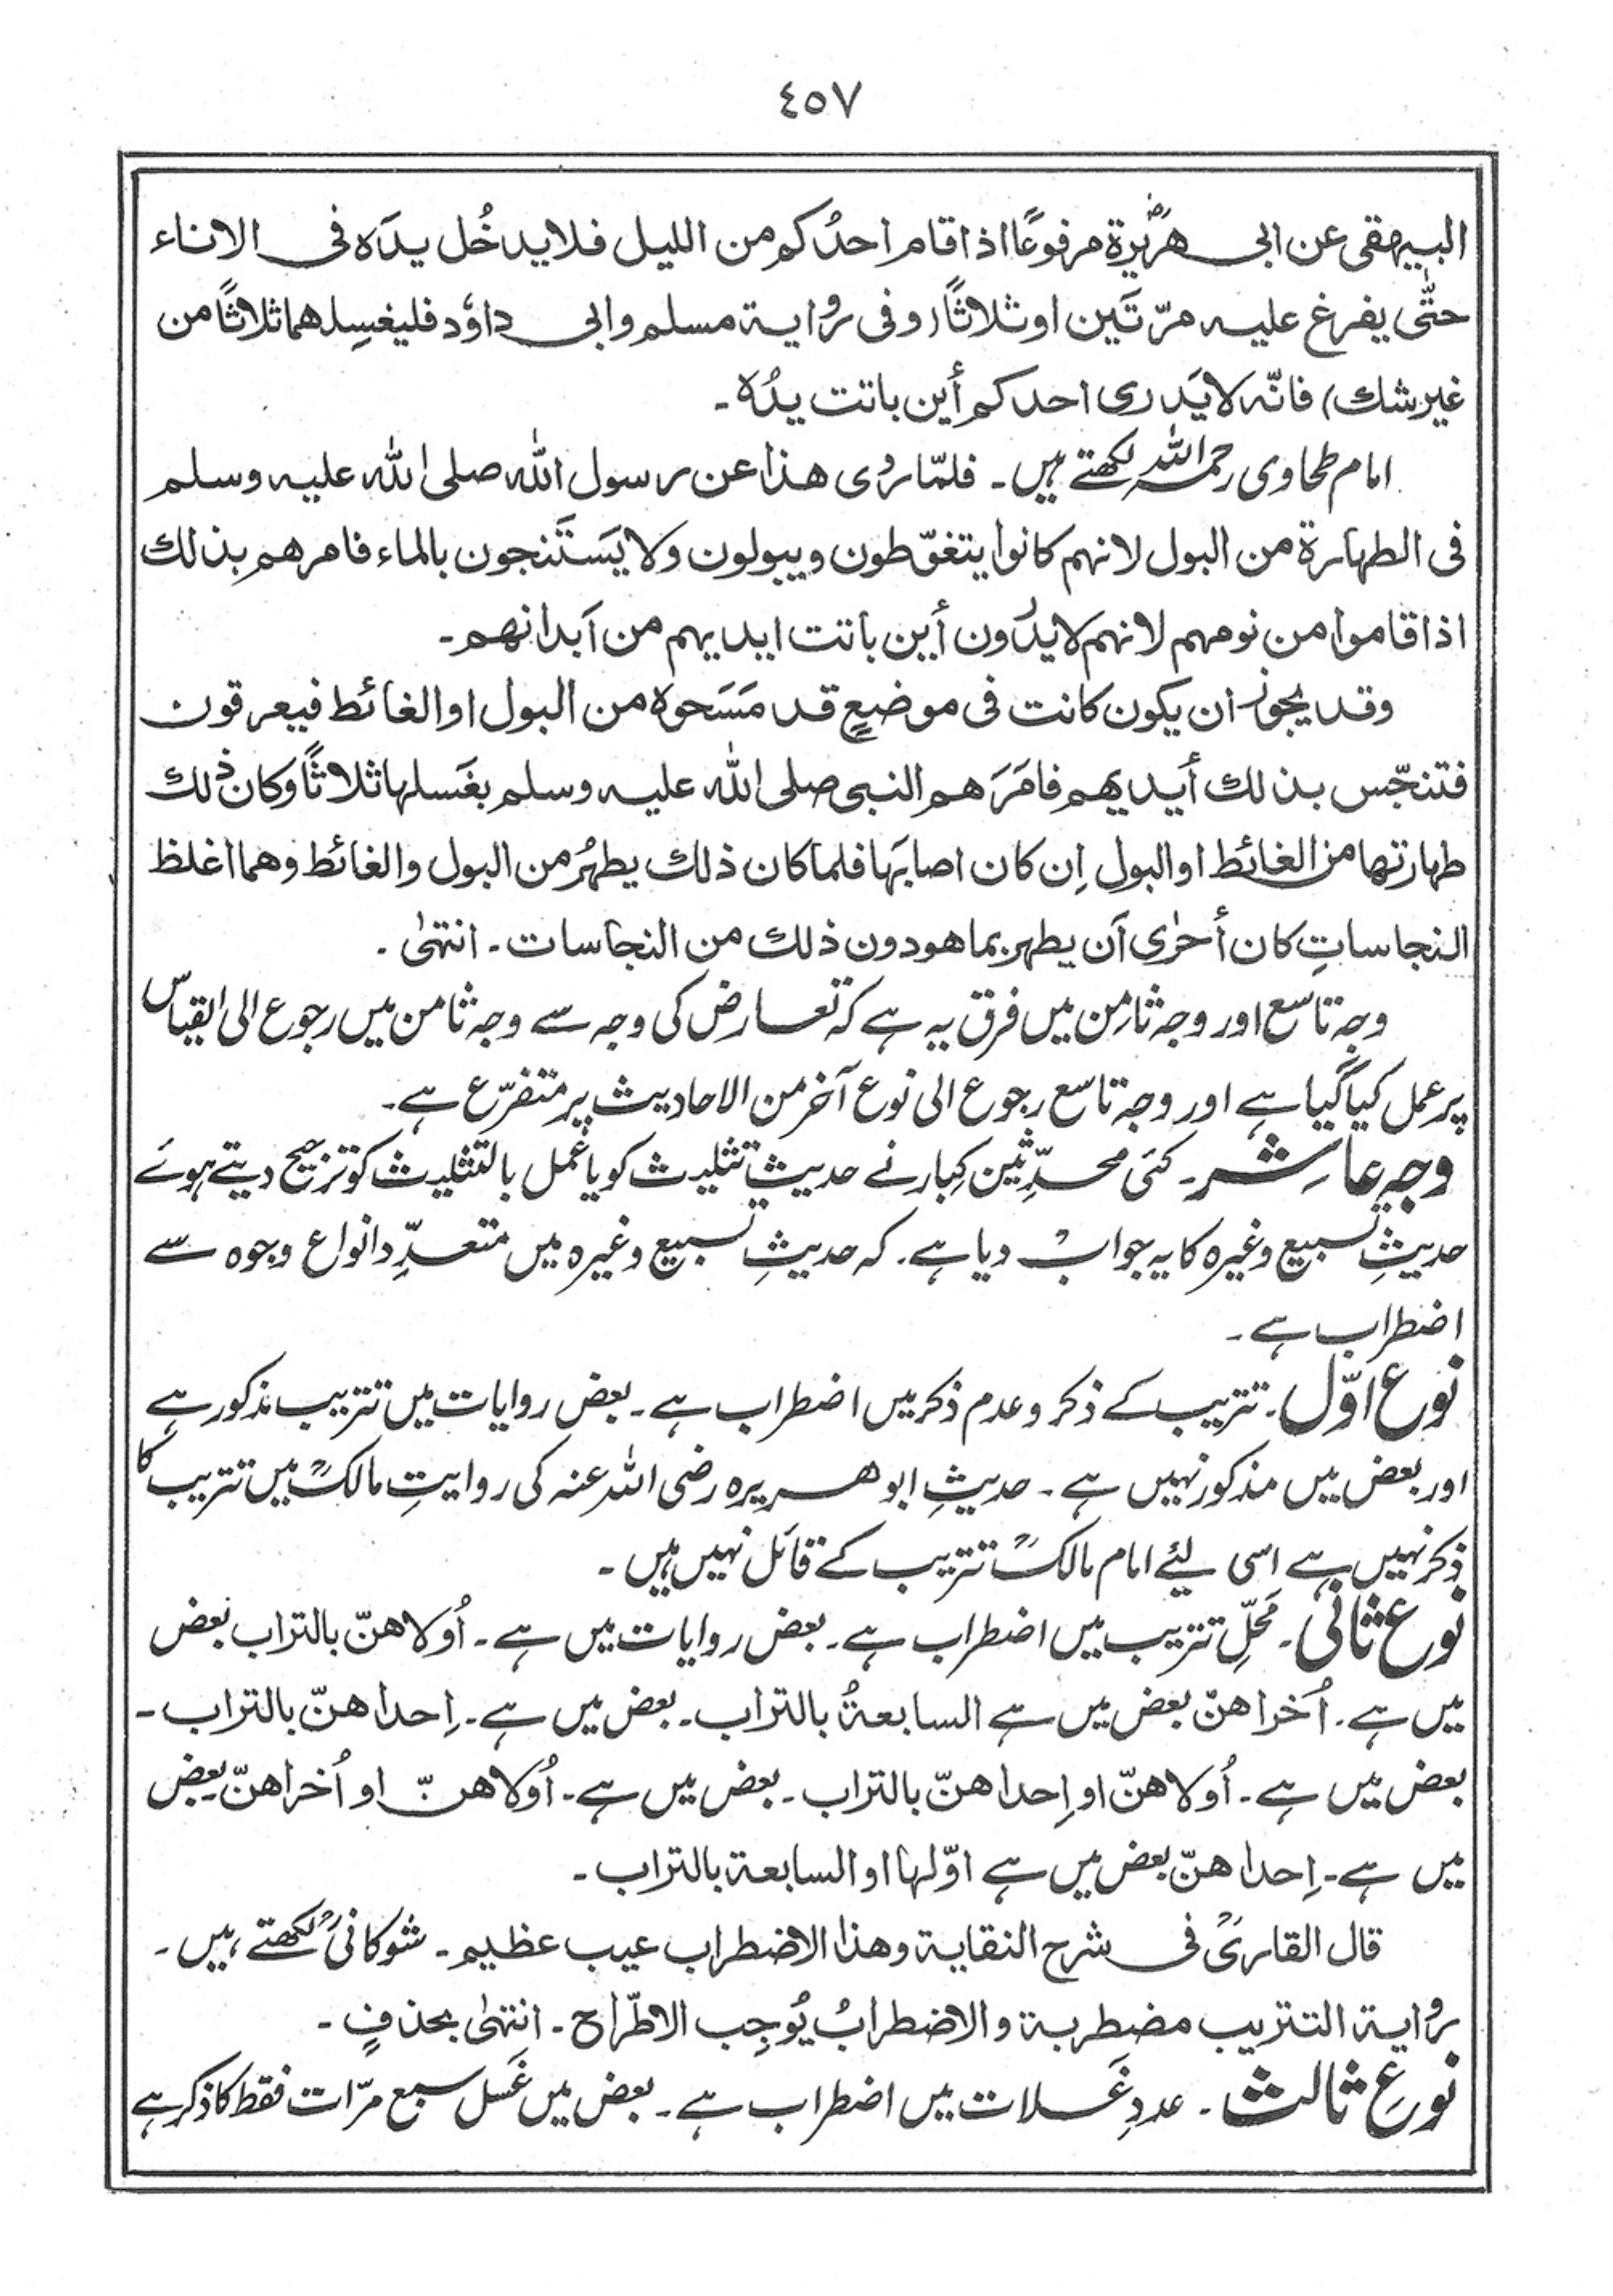 ٤٥٧
البيهقى عن ابى هريرةؓ مرفوعًا اذا قام احدُكم من الليل فلا يدخُل يدَه فى الاناء
حتّٰى يفرغ عليه مرّتَين او ثلاثًا (وفى رِواية مسلم وابى داوٗد فليغسِلهما ثلاثًا من
غير شك) فانّه لا يَدرى احدكم أين باتت يدُه ـ
امام طحاوى رحمہ اللہ لکھتے ہیں ۔ فلمّا رُوى هذا عن رسول الله صلى الله عليه وسلم
فى الطهارة من البول لانهم كانوا يتغوّطون ويبولون ولا يَستَنجون بالماء فامرهم بذلك
اذا قاموا من نومهم لانهم لا يدرُون أين باتت ايديهم من اَبدانهم ـ
وقد يجوز ان يكون كانت فى موضعٍ قد مَسَحوه من البول او الغائط فيعرقون
فتنجّس بذلك أيديهم فامَرَهم النبى صلى الله عليه وسلم بغَسلها ثلاثًا وكان ذٰلك
طهارتها من الغائط او البولِ اِن كان اصابَها فلما كان ذلك يطهرُ من البول والغائط وهما اغلظ
النجاساتِ كان أحرٰى اَن يطهر بما هو دون ذلك من النجاسات ـ انتهىٰ ۔
وجہِ تاسع اور وجہِ ثامِن میں فرق یہ ہے کہ تعارض کی وجہ سے وجہ ثامن میں رجوع الی القیاس
پر عمل کیا گیا ہے اور وجہِ تاسع رجوع الی نوع آخر من الاحادیث پر متفرّع ہے ۔
وجہِ عاشر ۔ کئی محدّثین کِبار نے حدیثِ تثلیث کو یا عمل بالتثلیث کو ترجیح دیتے ہوئے
حدیثِ تسبیع وغیرہ کا یہ جواب دیا ہے ۔ کہ حدیثِ تسبیع وغیرہ میں متعدّد انواع وجوہ سے
اضطراب ہے ۔
نوع اوّل ۔ تتریب کے ذکر و عدم ذکر میں اضطراب ہے ۔ بعض روایات میں تتریب مذکور ہے
اور بعض میں مذکور نہیں ہے ۔ حدیثِ ابوھریرہ رضی اللہ عنہ کی روایتِ مالکؒ میں تتریب کا
ذکر نہیں ہے اسی لئے امام مالکؒ تتریب کے قائل نہیں ہیں ۔
نوع ثانی ۔ محَلِّ تتریب میں اضطراب ہے ۔ بعض روایات میں ہے ۔ اُولاهنّ بالتراب بعض
میں ہے ۔ اُخراهنّ بعض میں ہے السابعةُ بالتراب ۔ بعض میں ہے ۔ اِحداهنّ بالتراب ۔
بعض میں ہے ۔ اُولاهنّ او اِحداهنّ بالتراب ۔ بعض میں ہے ۔ اُولاهنّ او اُخراهنّ ۔ بعض
میں ہے ۔ اِحداهنّ بعض میں ہے اوّلها او السابعة بالتراب ۔
قال القارىؒ فى شرح النقاية وهذا الاضطراب عيب عظيم ـ شوکانیؒ لکھتے ہیں ۔
رِواية التتريب مضطربة والاضطرابُ يُوجِب الاطّراح ـ انتهىٰ بحذفٍ ـ
نوعِ ثالث ۔ عددِ غَسلات میں اضطراب ہے ۔ بعض میں غَسل سبع مرّات فقط کا ذکر ہے